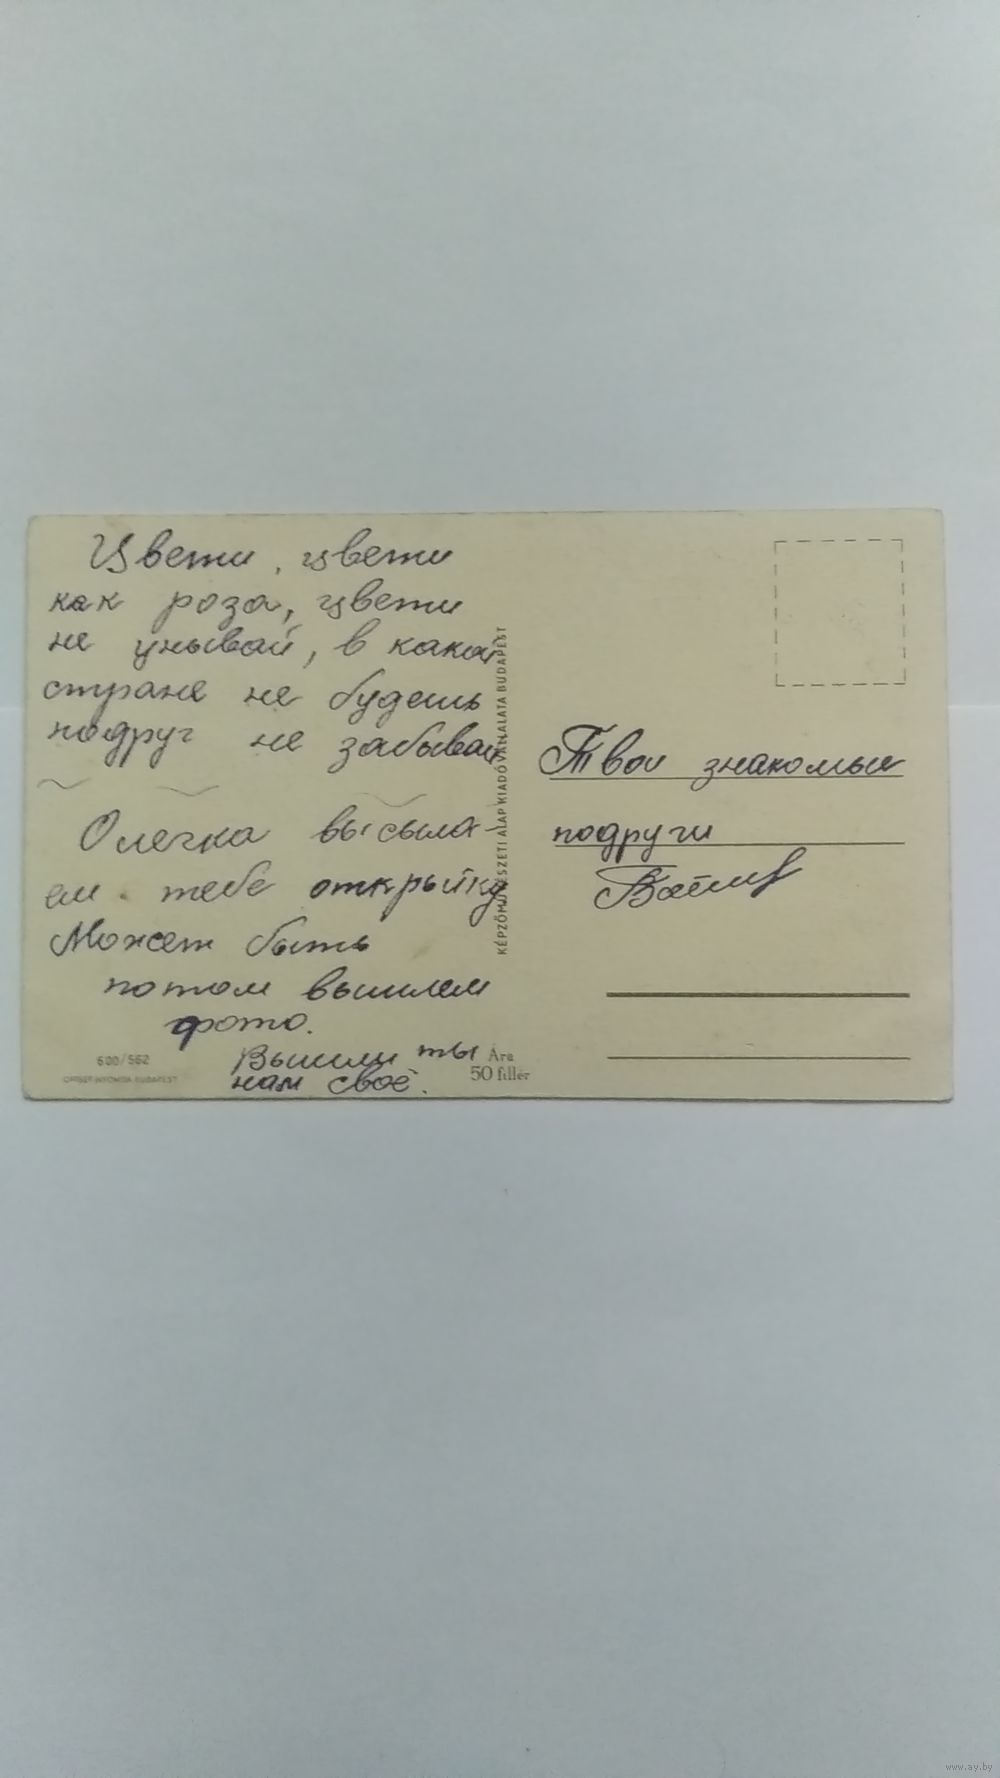 Цвети, цвети
как роза, цвети
не унывай, в какой
стране не будешь
подруг не забывай
Олечка высыла-
ем тебе открытку
Может быть
потом вышлем
фото.
Вышли ты
нам своё.
600/562
OFFSET-NYOMDA BUDAPEST
Ára
50 fillér
KÉPZŐMŰVÉSZETI ALAP KIADÓVÁLLALATA BUDAPEST
Твои знакомые
подруги
www.ay.by